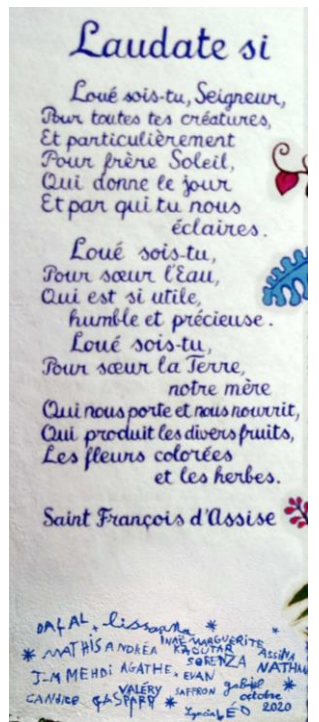 Laudate si
Loué sois-tu, Seigneur,
Pour toutes tes créatures,
Et particulièrement
Pour frère Soleil,
Qui donne le jour
Et par qui tu nous
éclaires.
Loué sois-tu,
Pour sœur l'Eau,
Qui est si utile,
humble et précieuse.
Loué sois-tu,
Pour sœur la Terre,
notre mère
Qui nous porte et nous nourrit,
Qui produit les divers fruits,
Les fleurs colorées
et les herbes.
Saint François d'Assise
DALAL
INAE MARGUERITE
MATHIS ANDRÉA KAOUTAR ASSIYA
SORENZA NATHAN
J-M MEHDI AGATHE EVAN
VALÉRY SAFFRON gabriel octobre
CANDICE GASPARD LÉO 2020